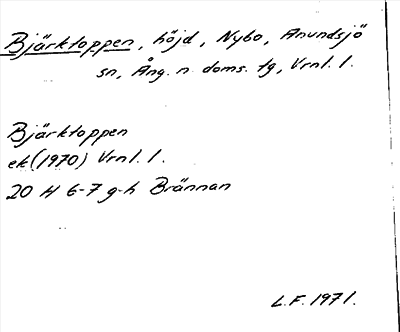 Bjärktoppen, höjd, Nybo, Anundsjö
sn, Ång. n. doms. tg, Vrnl. l.
Bjärktoppen
ek (1970) Vrnl. l.
20 H 6-7 g-h Brännan
L.F. 1971.